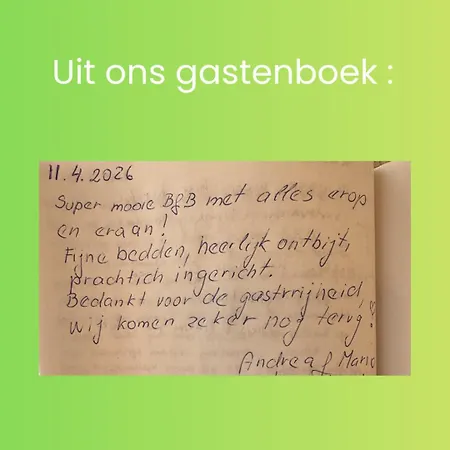 Uit ons gastenboek :
11.4.2026
Super mooie B&B met alles erop
en eraan!
Fijne bedden, heerlijk ontbijt,
prachtich ingericht.
Bedankt voor de gastvrijheid,
wij komen zeker nog terug!
Andrea &